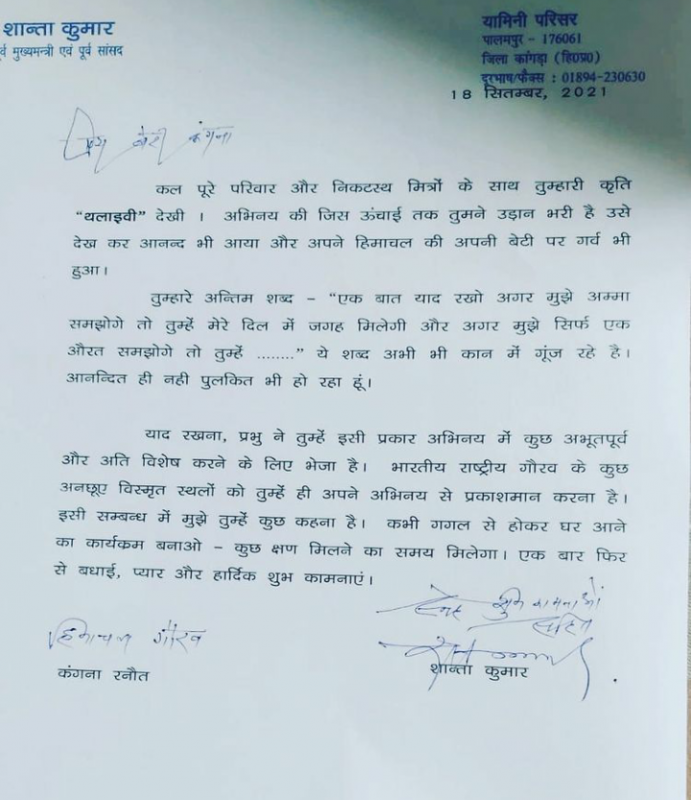 शान्ता कुमार
पूर्व मुख्यमन्त्री एवं पूर्व सांसद
यामिनी परिसर
पालमपुर - 176061
जिला कांगड़ा (हि0प्र0)
दूरभाष/फैक्स : 01894-230630
18 सितम्बर, 2021
प्रिय बेटी कंगना
कल पूरे परिवार और निकटस्थ मित्रों के साथ तुम्हारी कृति
“थलाइवी” देखी । अभिनय की जिस ऊंचाई तक तुमने उड़ान भरी है उसे
देख कर आनन्द भी आया और अपने हिमाचल की अपनी बेटी पर गर्व भी
हुआ।
तुम्हारे अन्तिम शब्द – “एक बात याद रखो अगर मुझे अम्मा
समझोगे तो तुम्हें मेरे दिल में जगह मिलेगी और अगर मुझे सिर्फ एक
औरत समझोगे तो तुम्हें ........” ये शब्द अभी भी कान में गूंज रहे है।
आनन्दित ही नही पुलकित भी हो रहा हूं।
याद रखना, प्रभु ने तुम्हें इसी प्रकार अभिनय में कुछ अभूतपूर्व
और अति विशेष करने के लिए भेजा है। भारतीय राष्ट्रीय गौरव के कुछ
अनछूए विस्मृत स्थलों को तुम्हें ही अपने अभिनय से प्रकाशमान करना है।
इसी सम्बन्ध में मुझे तुम्हें कुछ कहना है। कभी गगल से होकर घर आने
का कार्यक्रम बनाओ – कुछ क्षण मिलने का समय मिलेगा। एक बार फिर
से बधाई, प्यार और हार्दिक शुभ कामनाएं।
शुभ कामनाओं
सहित
हिमाचल गौरव
कंगना रनौत
शान्ता कुमार